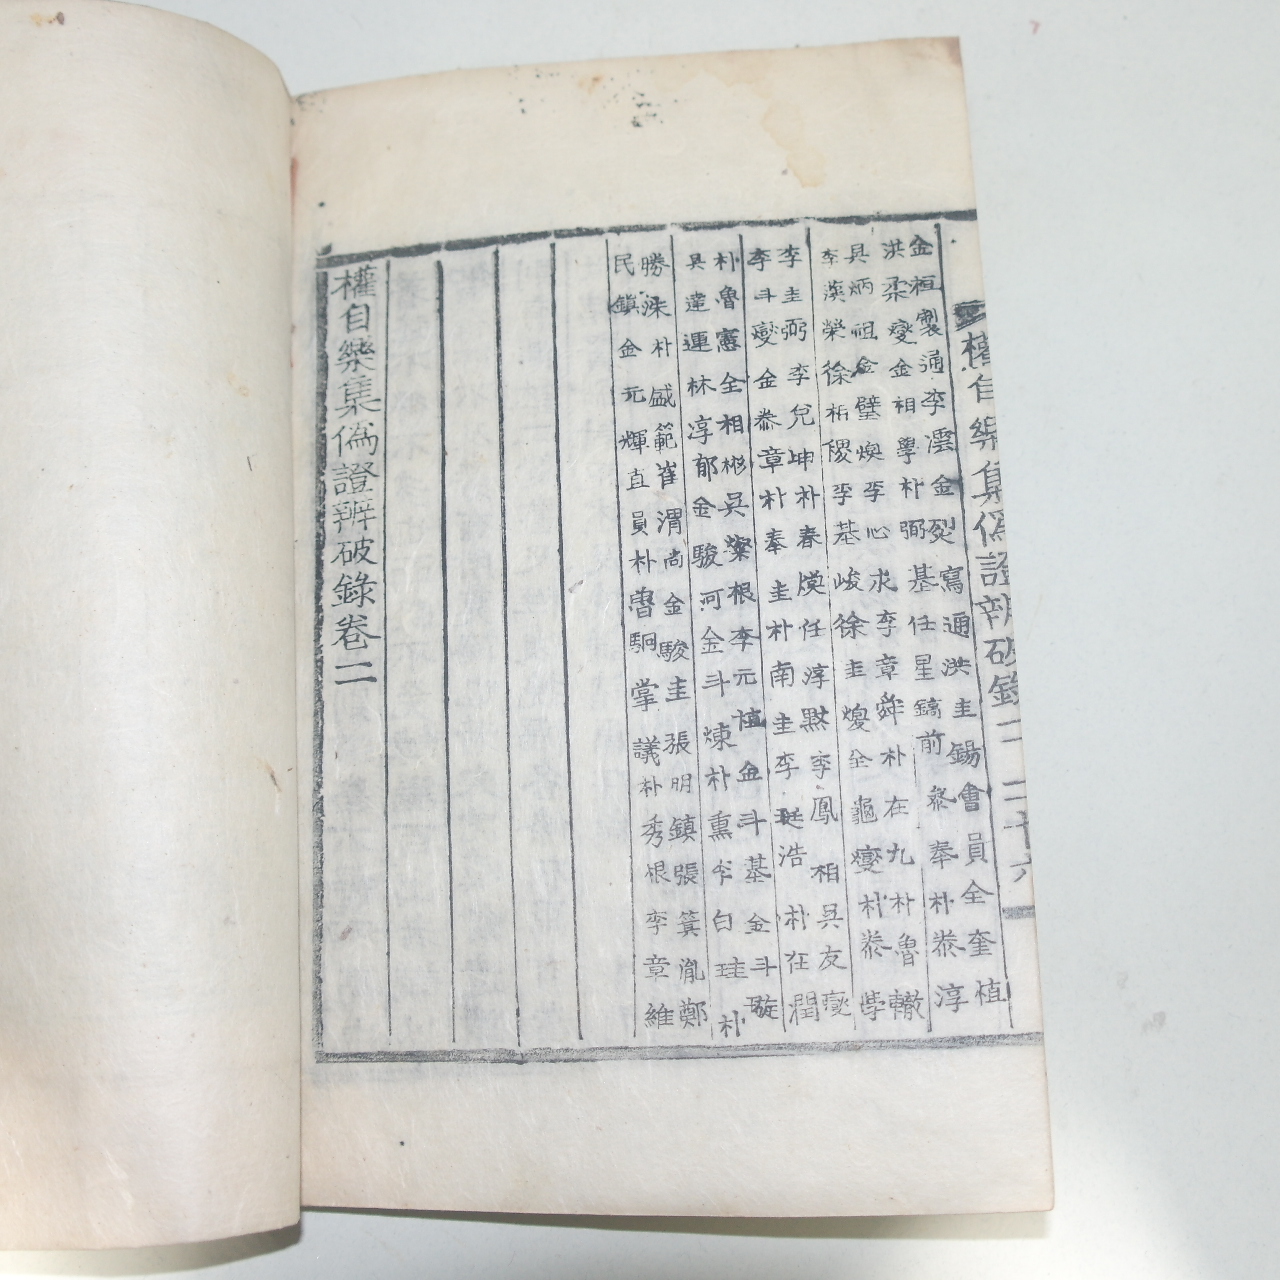 權自樂集僞證辨破錄二 二十六
金桓製通李澐金烈寫通洪圭錫會員全奎植
洪柔燮金相學朴弼基任星鎬前 泰奉朴泰淳
具炳祖金璧煥李心求李章舜朴在九朴魯轍
李漢榮徐柝稷李基峻徐圭燮全龜燮朴泰學
李圭弼李兌坤朴春煐任淳默李鳳相吳友燮
李斗燮金泰章朴奉圭朴南圭李珽浩朴在潤
朴魯憲全相彬吳燦根李元植金斗基金斗璇
具達運林淳郁金駿河金斗煉朴熏 白珪朴
勝洙朴盛範崔渭尚金駿圭張明鎮張箕胤鄭
民鎭金元輝直員朴魯駉掌議朴秀根李章維
權自樂集僞證辨破錄卷二